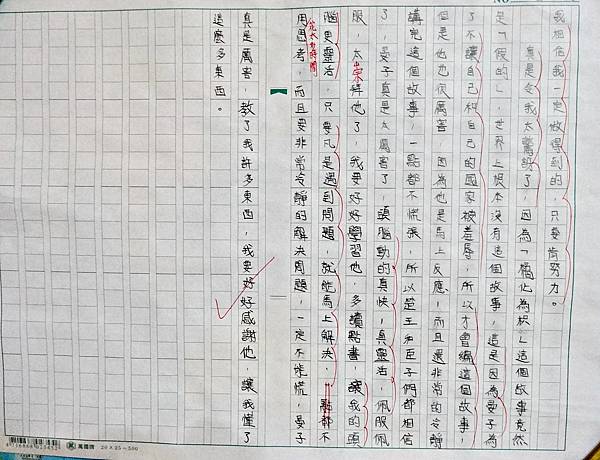 我相信我一定做得到的，只要肯努力。
真是令我太驚訝了，因為「橘化為枳」這個故事竟然
是「假的」，世界上根本沒有這個故事，這是因為晏子為
了不讓自己和自己的國家被羞辱，所以才會編這個故事，
但是他也很厲害，因為他是馬上反應，而且還非常的冷靜
講完這個故事，一點都不慌張，所以楚王和臣子們都相信
了，晏子真是太厲害了，頭腦動的真快，真靈活，佩服佩
服，太崇拜他了，我要好好學習他，多讀點書，讓我的頭
腦更靈活，只要凡是遇到問題，就能馬上解決，一點都不
用思考，而且要非常冷靜的解決問題，一定不能慌，晏子
花太多時間
真是厲害，教了我許多東西，我要好好感謝他，讓我懂了
這麼多東西。
NO.
萬國牌 20×25=500